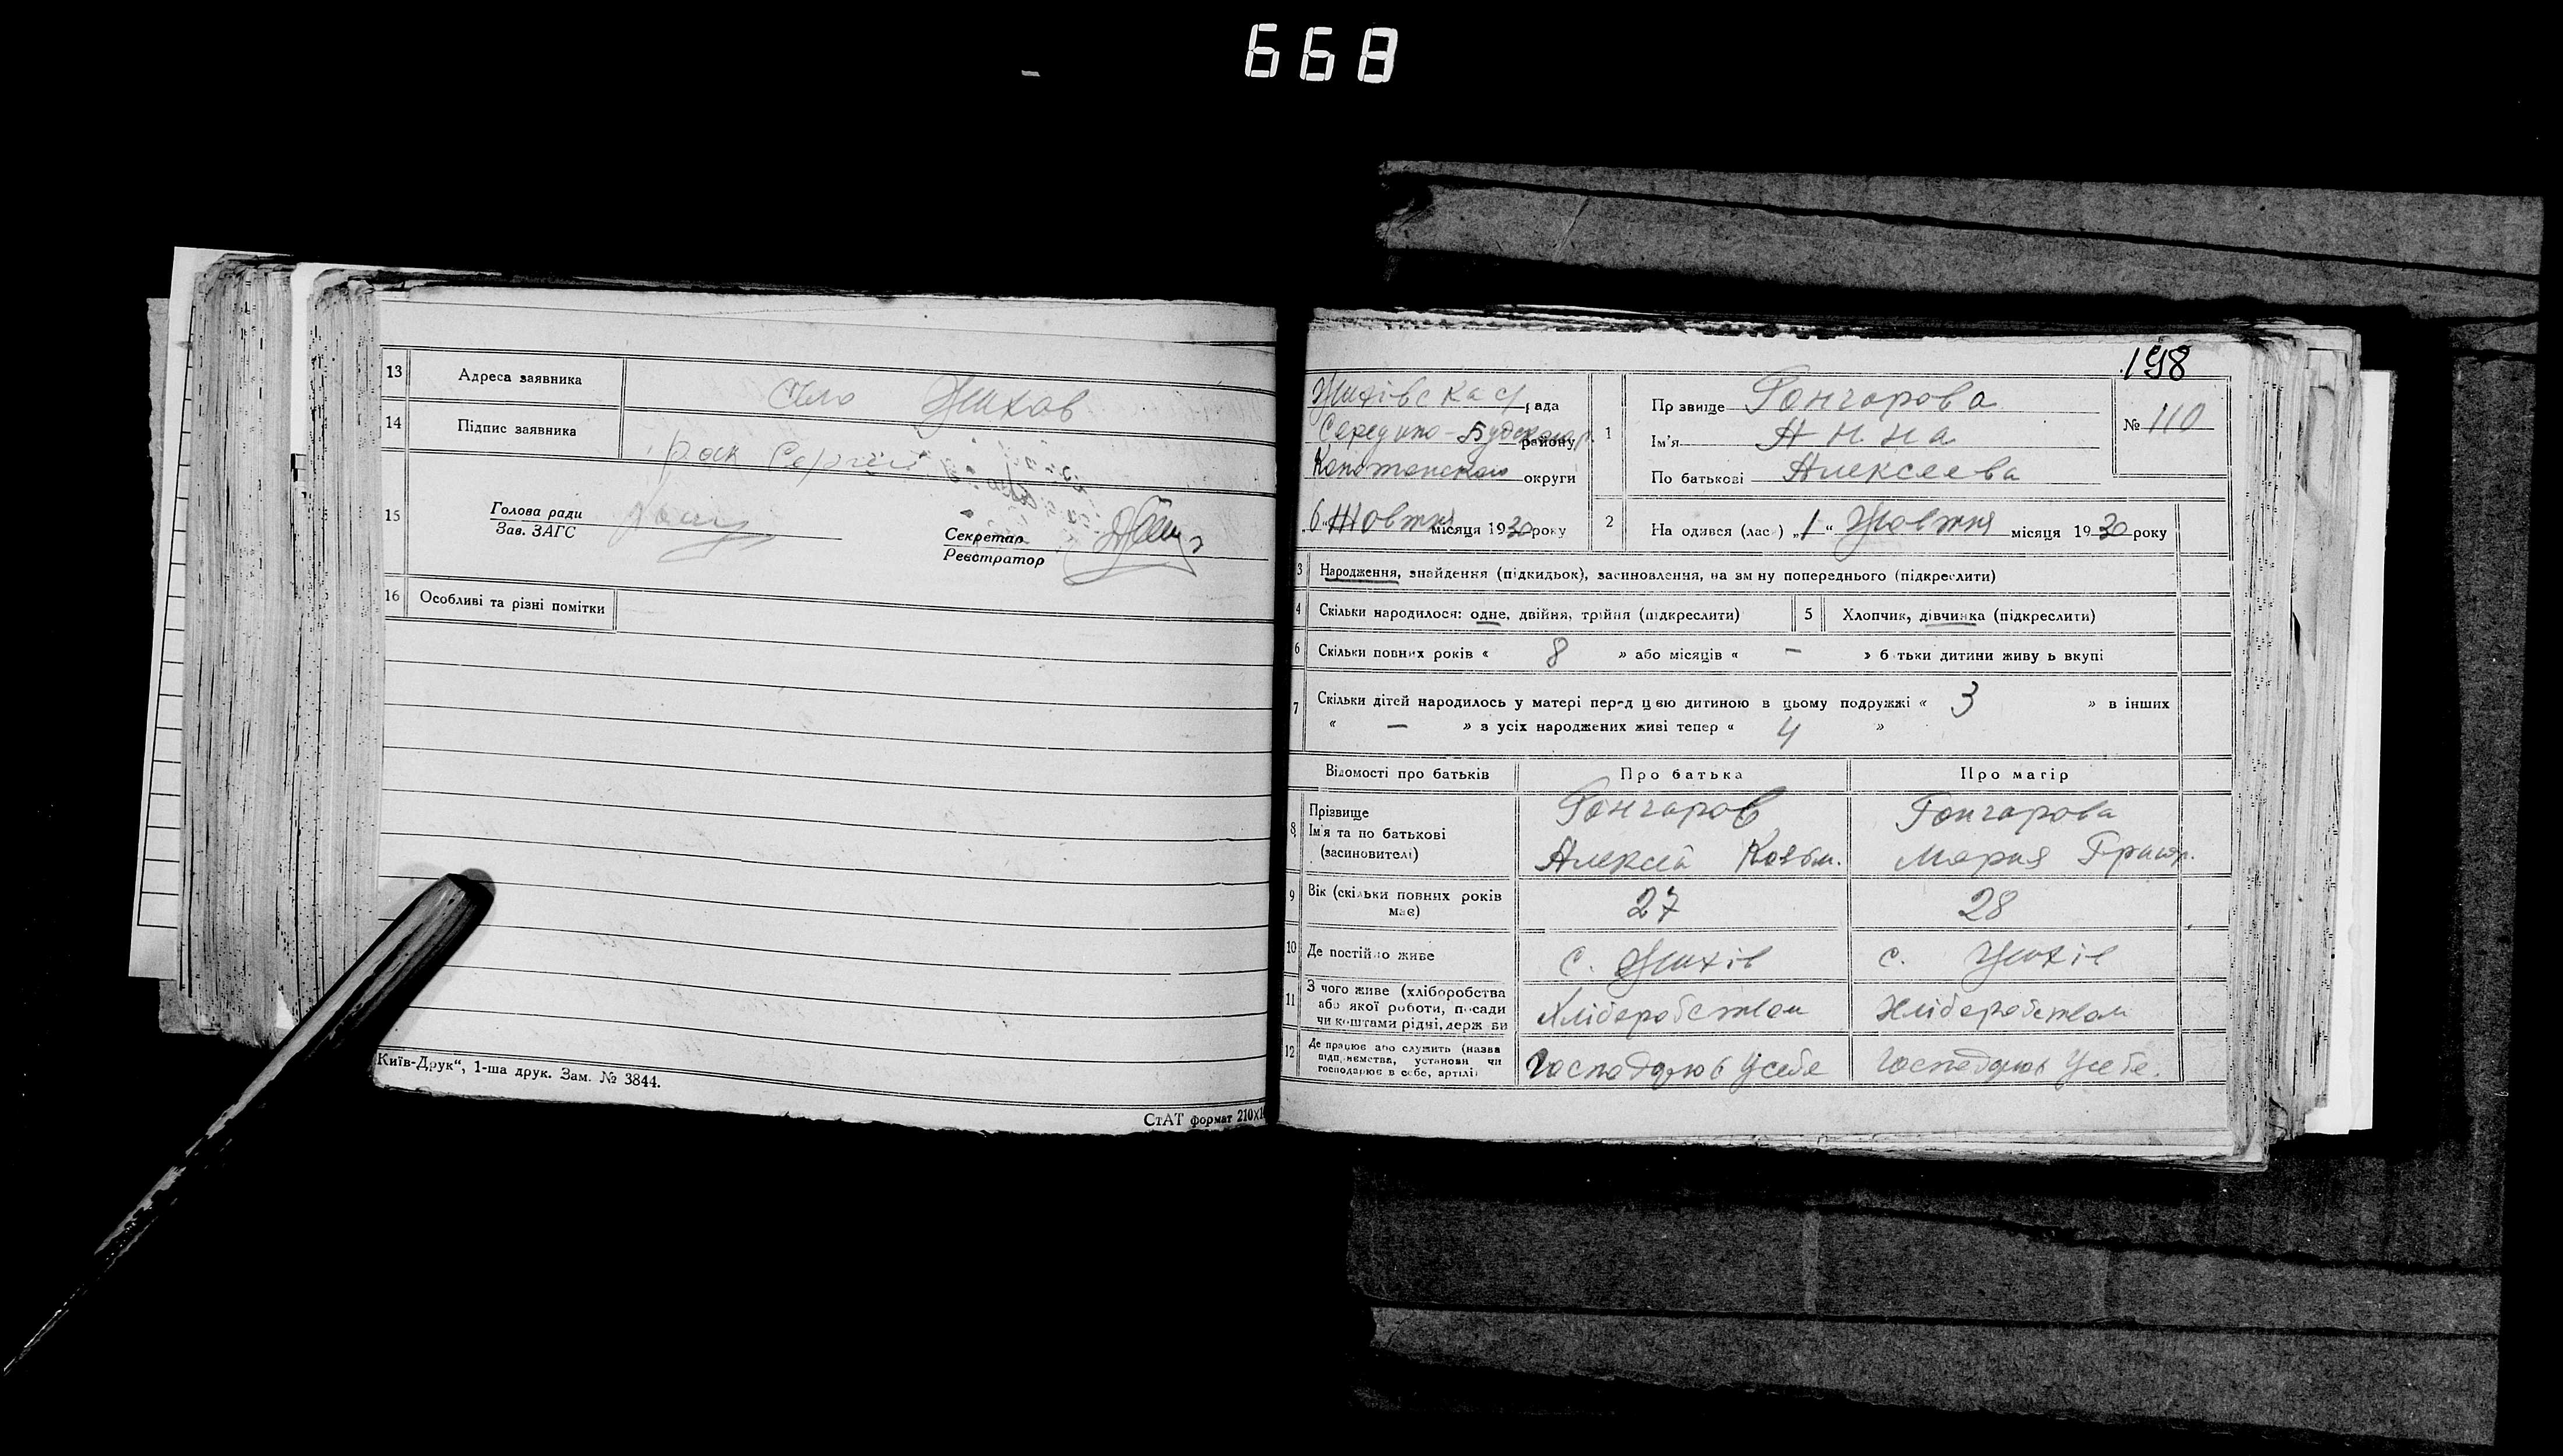 668
13 Адреса заявника Село Жихов
14 Підпис заявника
15 Голова ради
Зав. ЗАГС
Секретар
Реєстратор
16 Особливі та різні помітки
Київ-Друк“, 1-ша друк. Зам. № 3844.
СтАТ формат 210х1
198
Жихівська рада
Середино-Будського району
Конотопської округи
„6“ Жовтня місяця 1930 року
№ 110
1 Прізвище Гончарова
Ім'я Анна
По батькові Алексеева
2 Народився (лась) „1“ Жовтня місяця 1930 року
3 Народження, знайдення (підкидьок), засиновлення, на зміну попереднього (підкреслити)
4 Скільки народилося: одне, двійня, трійня (підкреслити) 5 Хлопчик, дівчинка (підкреслити)
6 Скільки повних років « 8 » або місяців « — » батьки дитини живуть вкупі
7 Скільки дітей народилось у матері перед цією дитиною в цьому подружжі « 3 » в інших
« — » з усіх народжених живі тепер « 4 »
Відомості про батьків Про батька Про матір
8 Прізвище Гончаров Гончарова
Ім'я та по батькові
(засиновителі) Алексей Козьм. Мария Григор.
9 Вік (скільки повних років має) 27 28
10 Де постійно живе с. Жихів с. Жихів
11 З чого живе (хліборобства
або якої роботи, посади
чи коштами рідні, держави Хліборобством Хліборобством
12 Де працює або служить (назва
підприємства, установи чи
господарює в себе, артілі) Господарює у себе Господарює у себе.